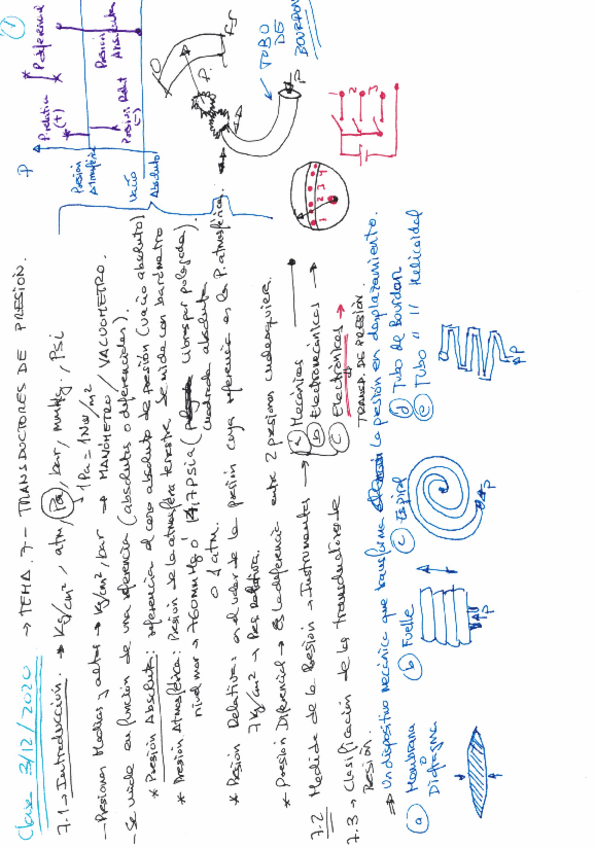 Clase 3/12/2020 → TEMA. 7 - TRANSDUCTORES DE PRESIÓN.
①
7.1 → Introducción. → Kg/cm², atm, Pa, bar, mmHg., PSi
1Pa = 1 Nw/m²
- Presiones Medias y altas → kg/cm², bar → MANÓMETRO / VACUOMETRO.
- Se mide en función de una referencia (absolutas o diferenciales).
* Presión Absoluta: referencia al cero absoluto de presión (vacio absoluto)
* Presión Atmosférica: Presión de la atmosfera terrestre. Se mide con barómetro
nivel mar → 760mmHg ó 14,7 PSia (libras por pulgada)
cuadrada absoluta
o 1 atm.
* Presión Relativa: es el valor de la presión cuya referencia es la P. atmosférica.
7 kg/cm² → Pres relativa.
* Presión Diferencial → Es la diferencia entre 2 presiones cualesquiera.
P
P. relativa (+)
P. diferencial
Presión Atmosférica
Presión Relat (-)
Presión Absoluta
Vacío Absoluto
7.2 Medida de la Presión → Instrumentos → a Mecánicos
b Electromecánicos →
c Electrónicos →
TRANSD. DE PRESIÓN
P.
TUBO DE BOURDON
P
1 2 3 4
1
2
3
7.3 → Clasificación de los transductores de
Presión.
⇒ Un dispositivo mecánico que transforma la presión en desplazamiento.
a Membrana o Diafragma
b Fuelle
c Espiral
d Tubo de Bourdan
e Tubo " " Helicoidal
P
P
P